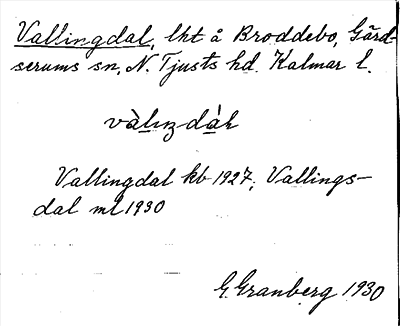 Vallingdal, lht å Broddebo, Gärd-
serums sn, N. Tjusts hd. Kalmar l.
Vallingdal kb 1927; Vallings-
dal ml 1930
G. Granberg 1930